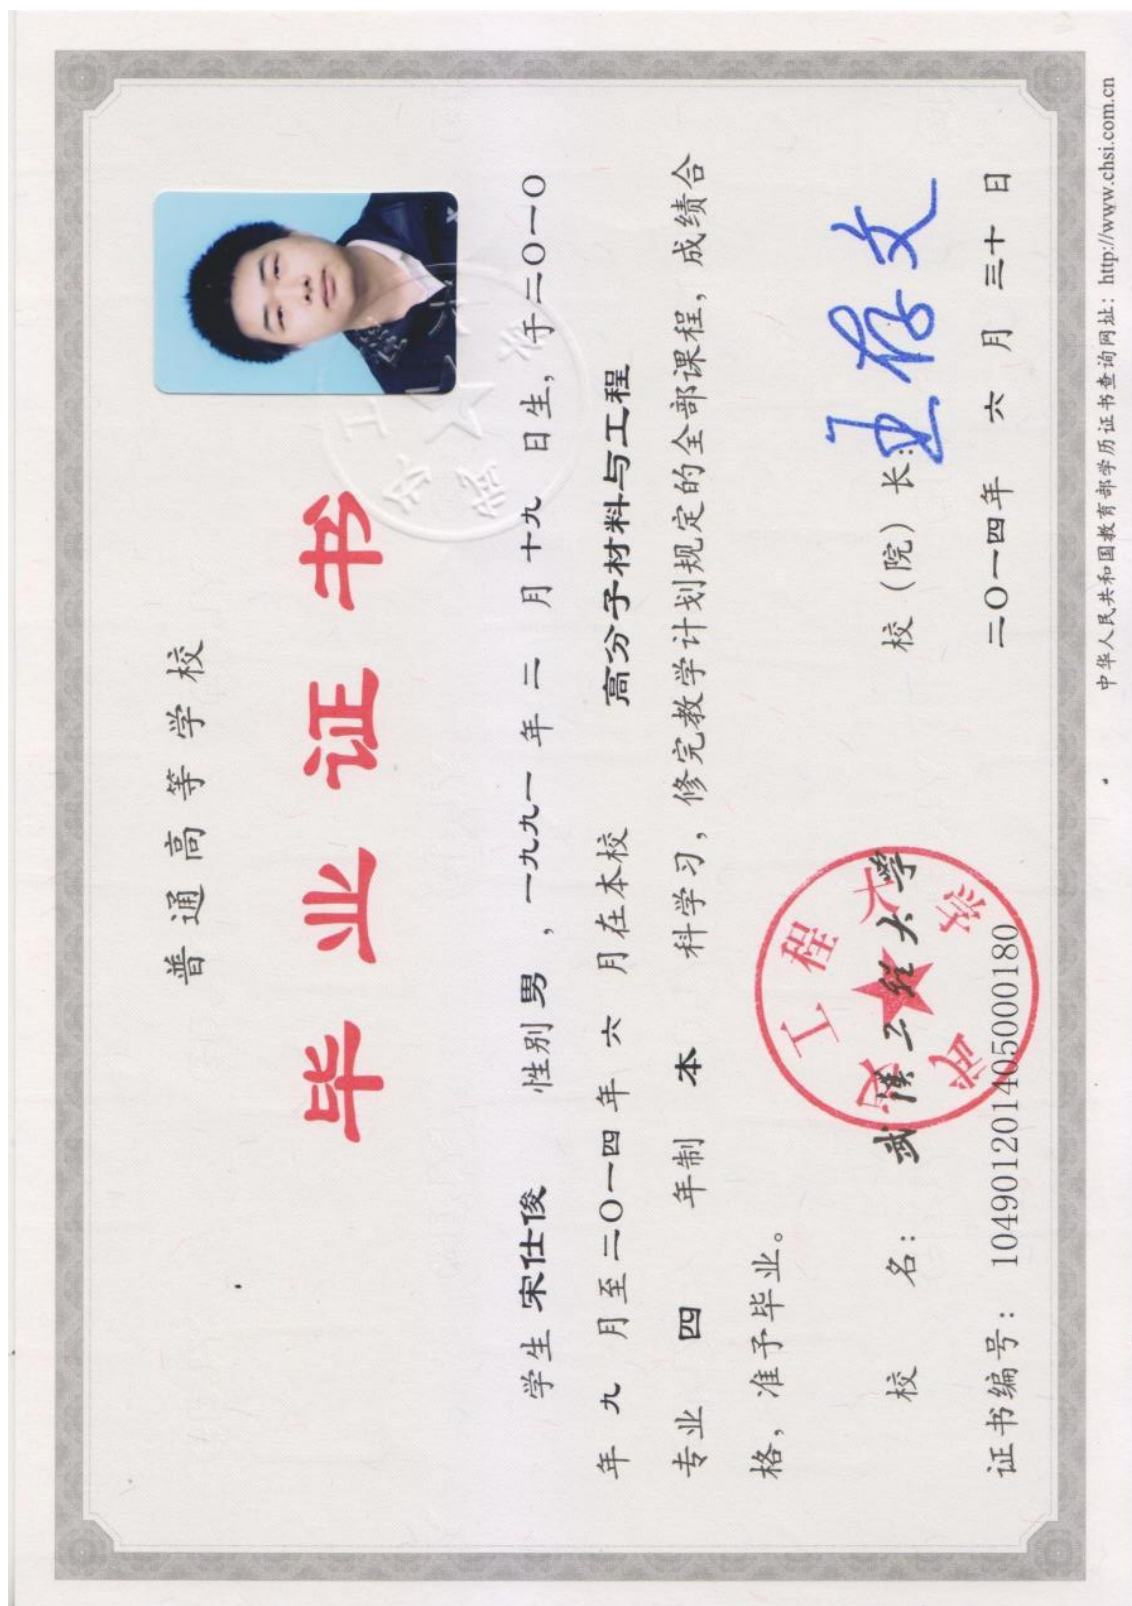 普通高等学校
毕业证书
学生 宋仕俊 性别 男 ，一九九一 年 二 月 十九 日生，于二〇一〇
年 九 月至二〇一四 年 六 月在本校 高分子材料与工程
专业 四 年制 本 科学习，修完教学计划规定的全部课程，成绩合
格，准予毕业。
校 名： 武汉工程大学
校（院）长：王存文
武汉工程大学
证书编号： 104901201405000180
二〇一四年 六 月 三十 日
中华人民共和国教育部学历证书查询网址：http://www.chsi.com.cn